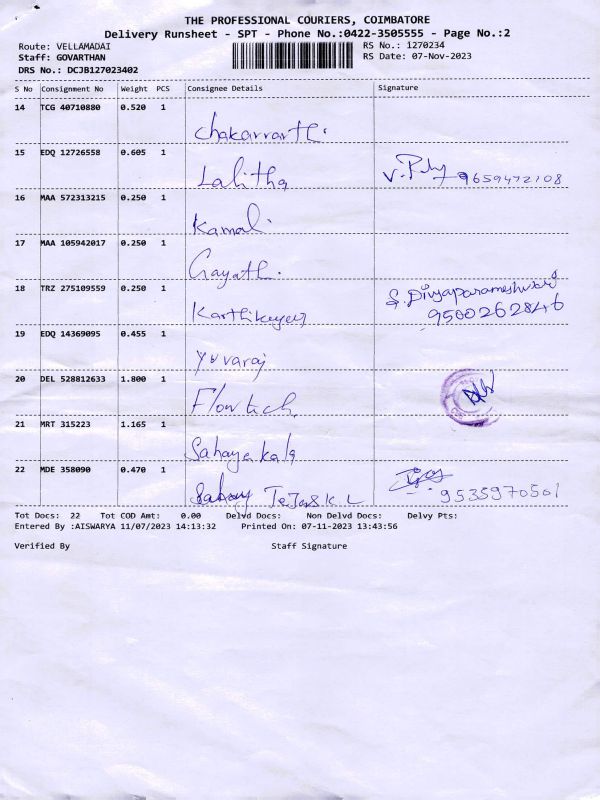 THE PROFESSIONAL COURIERS, COIMBATORE
Delivery Runsheet - SPT - Phone No.:0422-3505555 - Page No.:2
Route: VELLAMADAI RS No.: 1270234
Staff: GOVARTHAN RS Date: 07-Nov-2023
DRS No.: DCJB127023402
S No Consignment No Weight PCS Consignee Details Signature
14 TCG 40710880 0.520 1
Chakarvarthi
15 EDQ 12726558 0.605 1
Lalitha 9659472108
16 MAA 572313215 0.250 1
Kamal
17 MAA 105942017 0.250 1
Gayathi
18 TRZ 275109559 0.250 1
Karthikeyen S. Divyaparameshwari
9500262846
19 EDQ 14369095 0.455 1
Yuvaraj
20 DEL 528812633 1.800 1
Flowtech
21 MRT 315223 1.165 1
Sahaya kala
22 MDE 358090 0.470 1
Tejas K. L 9535970501
Tot Docs: 22 Tot COD Amt: 0.00 Delvd Docs: Non Delvd Docs: Delvy Pts:
Entered By :AISWARYA 11/07/2023 14:13:32 Printed On: 07-11-2023 13:43:56
Verified By Staff Signature